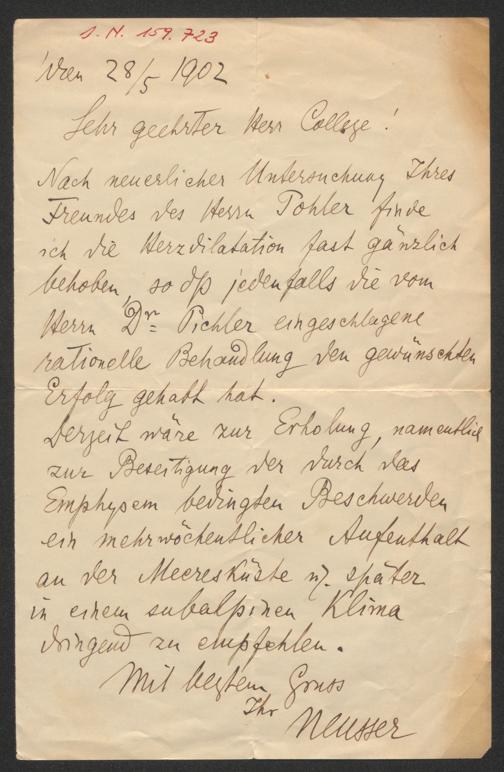 I. N. 159.723
Wien 28/5 1902
Sehr geehrter Herr College!
Nach neuerlicher Untersuchung Ihres
Freundes des Herrn Pohler finde
ich die Herzdilatation fast gänzlich
behoben, so dß jedenfalls die vom
Herrn Dr Pichler eingeschlagene
rationelle Behandlung den gewünschten
Erfolg gehabt hat.
Derzeit wäre zur Erholung, namentlich
zur Beseitigung der durch das
Emphysem bedingten Beschwerden
ein mehrwöchentlicher Aufenthalt
an der Meeresküste u. später
in einem subalpinen Klima
dringend zu empfehlen.
Mit bestem Gruss
Ihr
Neusser